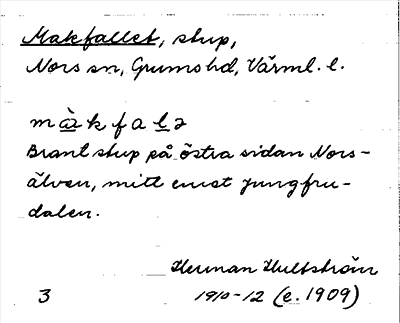 Makfallet, stup,
Nors sn, Grums hd, Värml. l.
mà̱kfaḻə
Brant stup på östra sidan Nors-
älven, mitt emot Jungfru-
dalen.
Herman Hultström
3 1910-12 (e. 1909)